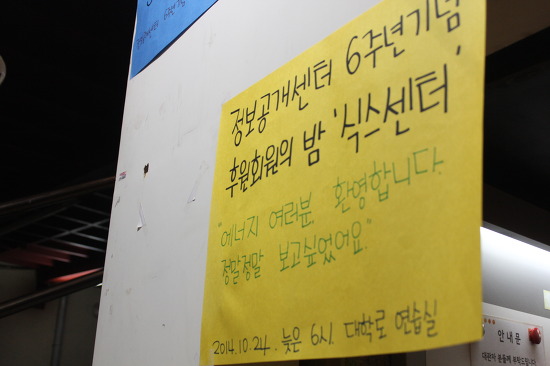 정보공개센터 6주년기념
후원회원의 밤 '식스센터'
"에너지 여러분, 환영합니다.
정말정말 보고싶었어요."
2014.10.24. 늦은 6시. 대학로 연습실
안내문